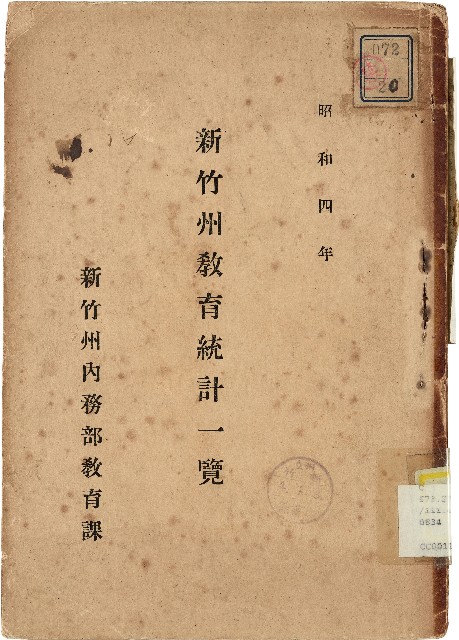 昭和四年
新竹州教育統計一覽
新竹州內務部教育課
072
20
0834